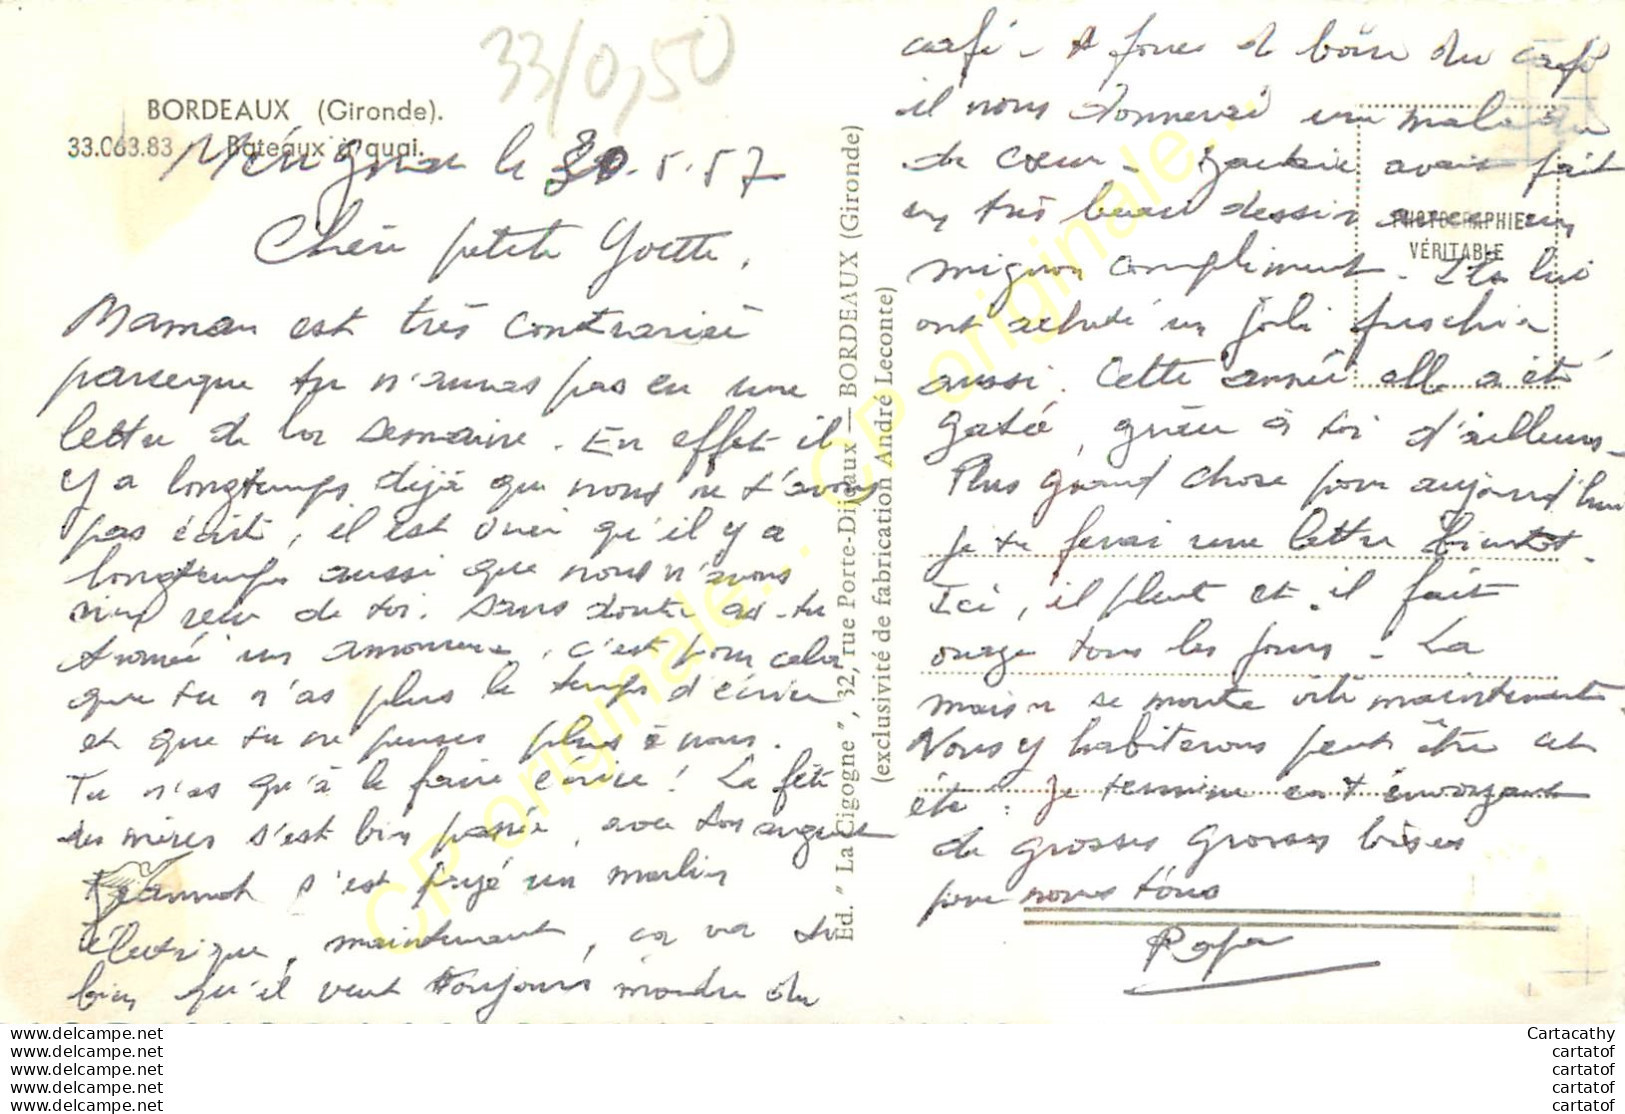 33/0,50
BORDEAUX (Gironde).
33.063.83 Bateaux à quai.
Mérignac le 30.5.57
Chère petite Yvette,
Maman est très contrariée
parceque tu n'auras pas eu une
lettre de la semaine. En effet il
y a longtemps déjà que nous ne t'avons
pas écrit, il est vrai qu'il y a
longtemps aussi que nous n'avons
rien reçu de toi. Sans doute as-tu
trouvé un amoureux, c'est pour cela
que tu n'as plus le temps d'écrire
et que tu ne penses plus à nous.
Tu n'as qu'à le faire écrire! La fête
des mères s'est bien passée, avec ton argent
Jeannot s'est payé un moulin
électrique, maintenant, ça va très
bien qu'il veut toujours moudre du
café - A force de boire du café
il nous donnerai une maladie
de coeur - avait fait
un très beau dessin avec un
mignon compliment - Ils lui
ont acheté un joli fuschia
aussi. Cette année elle a été
gatée, grâce à toi d'ailleurs -
Plus grand chose pour aujourd'hui
je te ferai une lettre bientôt -
Ici, il pleut et il fait
orage tous les jours - La
maison se monte vite maintenant.
Nous y habiterons peut être cet
été. Je termine en t'envoyant
de grosses grosses bises
pour nous tous
Papa
Ed. "La Cigogne", 32, rue Porte-Dijeaux — BORDEAUX (Gironde)
(exclusivité de fabrication André Leconte)
PHOTOGRAPHIE
VÉRITABLE
CP originale... CP originale... CP originale...
www.delcampe.net
www.delcampe.net
www.delcampe.net
www.delcampe.net
www.delcampe.net
Cartacathy
cartatof
cartatof
cartatof
cartatof